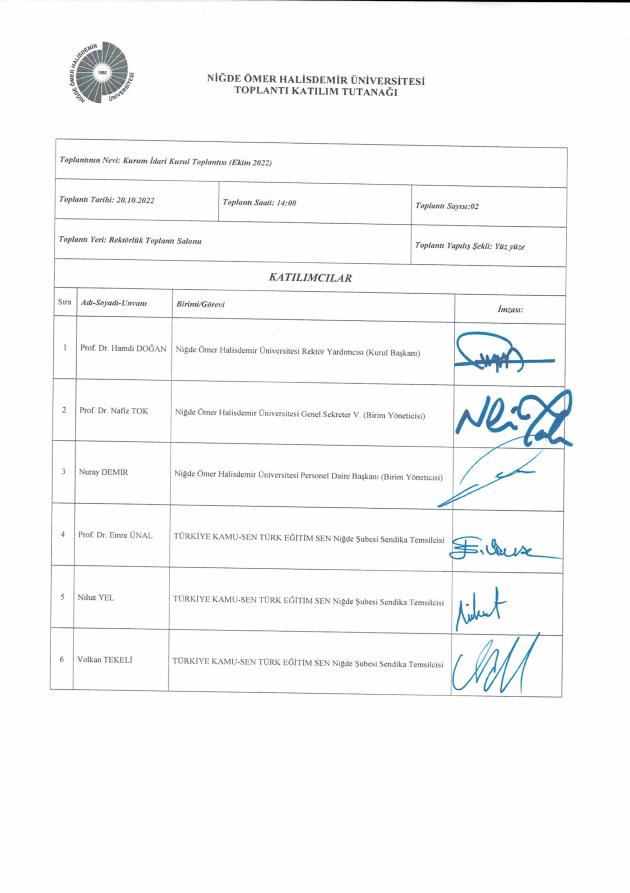 NİĞDE ÖMER HALİSDEMİR
ÜNİVERSİTESİ
1992
NİĞDE ÖMER HALİSDEMİR ÜNİVERSİTESİ
TOPLANTI KATILIM TUTANAĞI
Toplantının Nevi: Kurum İdari Kurul Toplantısı (Ekim 2022)
Toplantı Tarihi: 20.10.2022 Toplantı Saati: 14:00 Toplantı Sayısı:02
Toplantı Yeri: Rektörlük Toplantı Salonu Toplantı Yapılış Şekli: Yüz yüze
KATILIMCILAR
Sıra Adı-Soyadı-Unvanı Birimi/Görevi İmzası:
1 Prof. Dr. Hamdi DOĞAN Niğde Ömer Halisdemir Üniversitesi Rektör Yardımcısı (Kurul Başkanı)
2 Prof. Dr. Nafiz TOK Niğde Ömer Halisdemir Üniversitesi Genel Sekreter V. (Birim Yöneticisi)
3 Nuray DEMİR Niğde Ömer Halisdemir Üniversitesi Personel Daire Başkanı (Birim Yöneticisi)
4 Prof. Dr. Emre ÜNAL TÜRKİYE KAMU-SEN TÜRK EĞİTİM SEN Niğde Şubesi Sendika Temsilcisi
5 Nihat YEL TÜRKİYE KAMU-SEN TÜRK EĞİTİM SEN Niğde Şubesi Sendika Temsilcisi
6 Volkan TEKELİ TÜRKİYE KAMU-SEN TÜRK EĞİTİM SEN Niğde Şubesi Sendika Temsilcisi